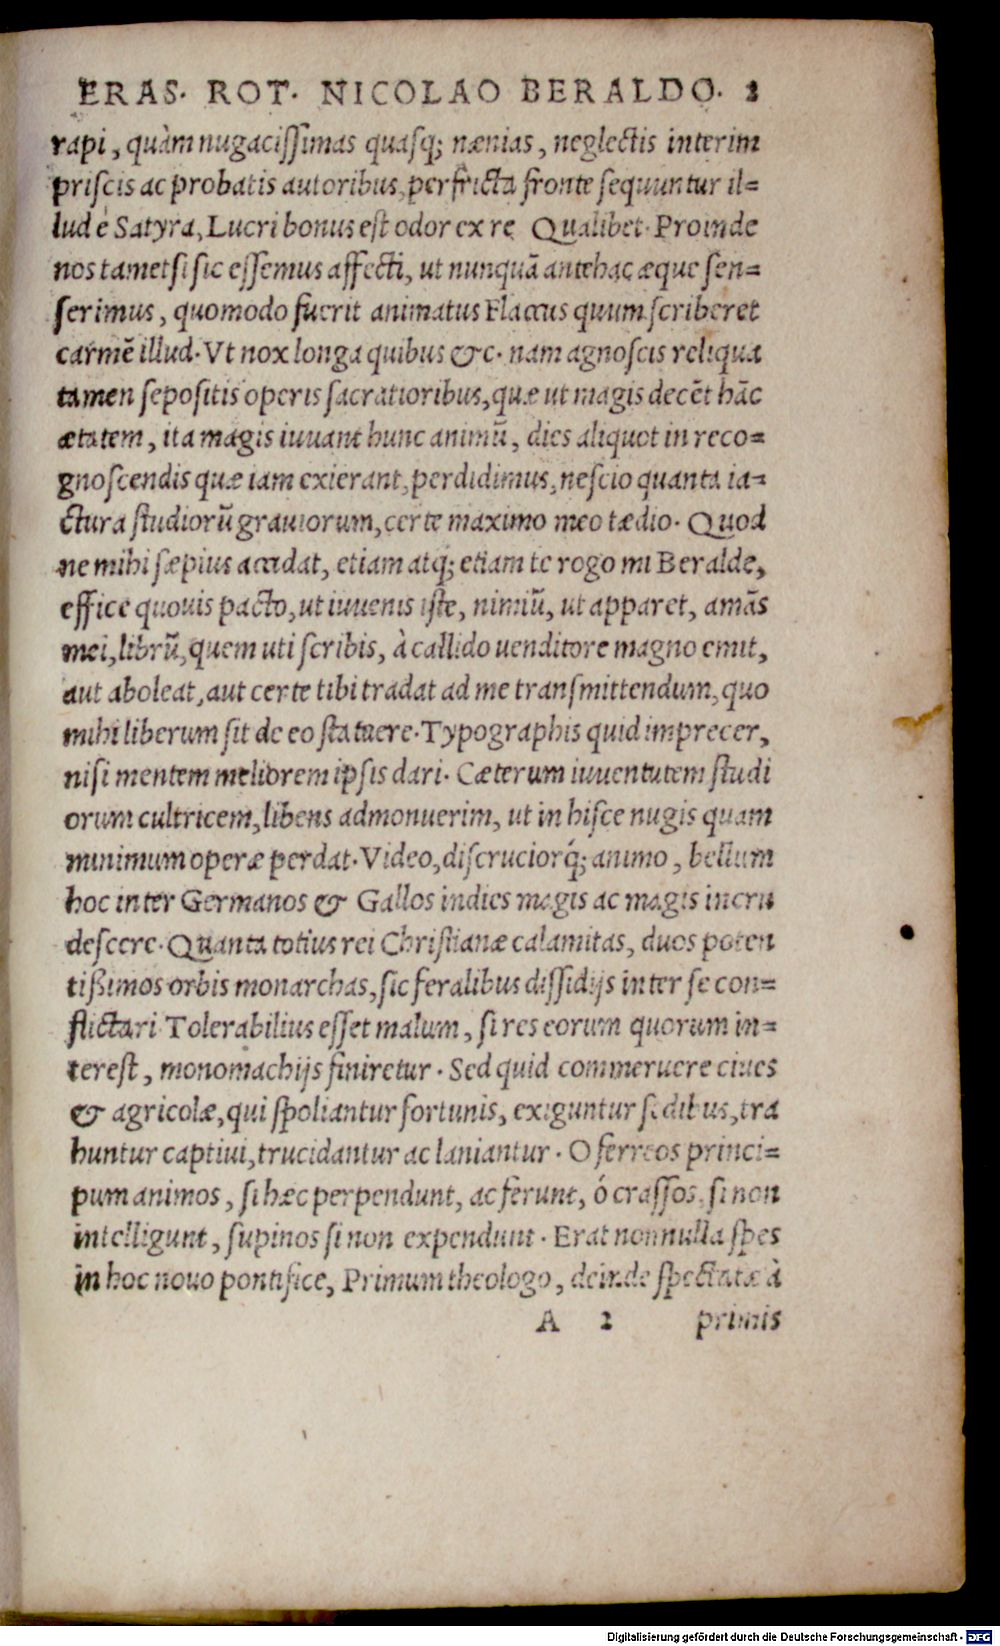 ERAS. ROT. NICOLAO BERALDO. 2
rapi, quàm nugacissimas quasq; nænias, neglectis interim
priscis ac probatis autoribus, perfricta fronte sequuntur il=
lud è Satyra, Lucri bonus est odor ex re Qualibet. Proinde
nos tametsi sic essemus affecti, ut nunquã antehac æque sen=
serimus, quomodo fuerit animatus Flaccus quum scriberet
carmẽ illud. Vt nox longa quibus &c. nam agnoscis reliqua
tamen sepositis operis sacratioribus, quæ ut magis decẽt hãc
ætatem, ita magis iuuant hunc animũ, dies aliquot in reco=
gnoscendis quæ iam exierant, perdidimus, nescio quanta ia=
ctura studiorũ grauiorum, certe maximo meo tædio. Quod
ne mihi sæpius accidat, etiam atq; etiam te rogo mi Beralde,
effice quouis pacto, ut iuuenis iste, nimiũ, ut apparet, amãs
mei, librũ, quem uti scribis, à callido uenditore magno emit,
aut aboleat, aut certe tibi tradat ad me transmittendum, quo
mihi liberum sit de eo statuere. Typographis quid imprecer,
nisi mentem meliorem ipsis dari. Cæterum iuuentutem studi
orum cultricem, libens admonuerim, ut in hisce nugis quam
minimum operæ perdat. Video, discruciorq́; animo, bellum
hoc inter Germanos & Gallos indies magis ac magis incru
descere. Quanta totius rei Christianæ calamitas, duos poten
tißimos orbis monarchas, sic feralibus dissidijs inter se con=
flictari Tolerabilius esset malum, si res eorum quorum in=
terest, monomachijs finiretur. Sed quid commeruere ciues
& agricolæ, qui spoliantur fortunis, exiguntur sedibus, tra
huntur captiui, trucidantur ac laniantur. O ferreos princi=
pum animos, si hæc perpendunt, ac ferunt, ó crassos, si non
intelligunt, supinos si non expendunt. Erat nonnulla spes
in hoc nouo pontifice, Primum theologo, deinde spectatæ à
A 2 primis
Digitalisierung gefördert durch die Deutsche Forschungsgemeinschaft - DFG